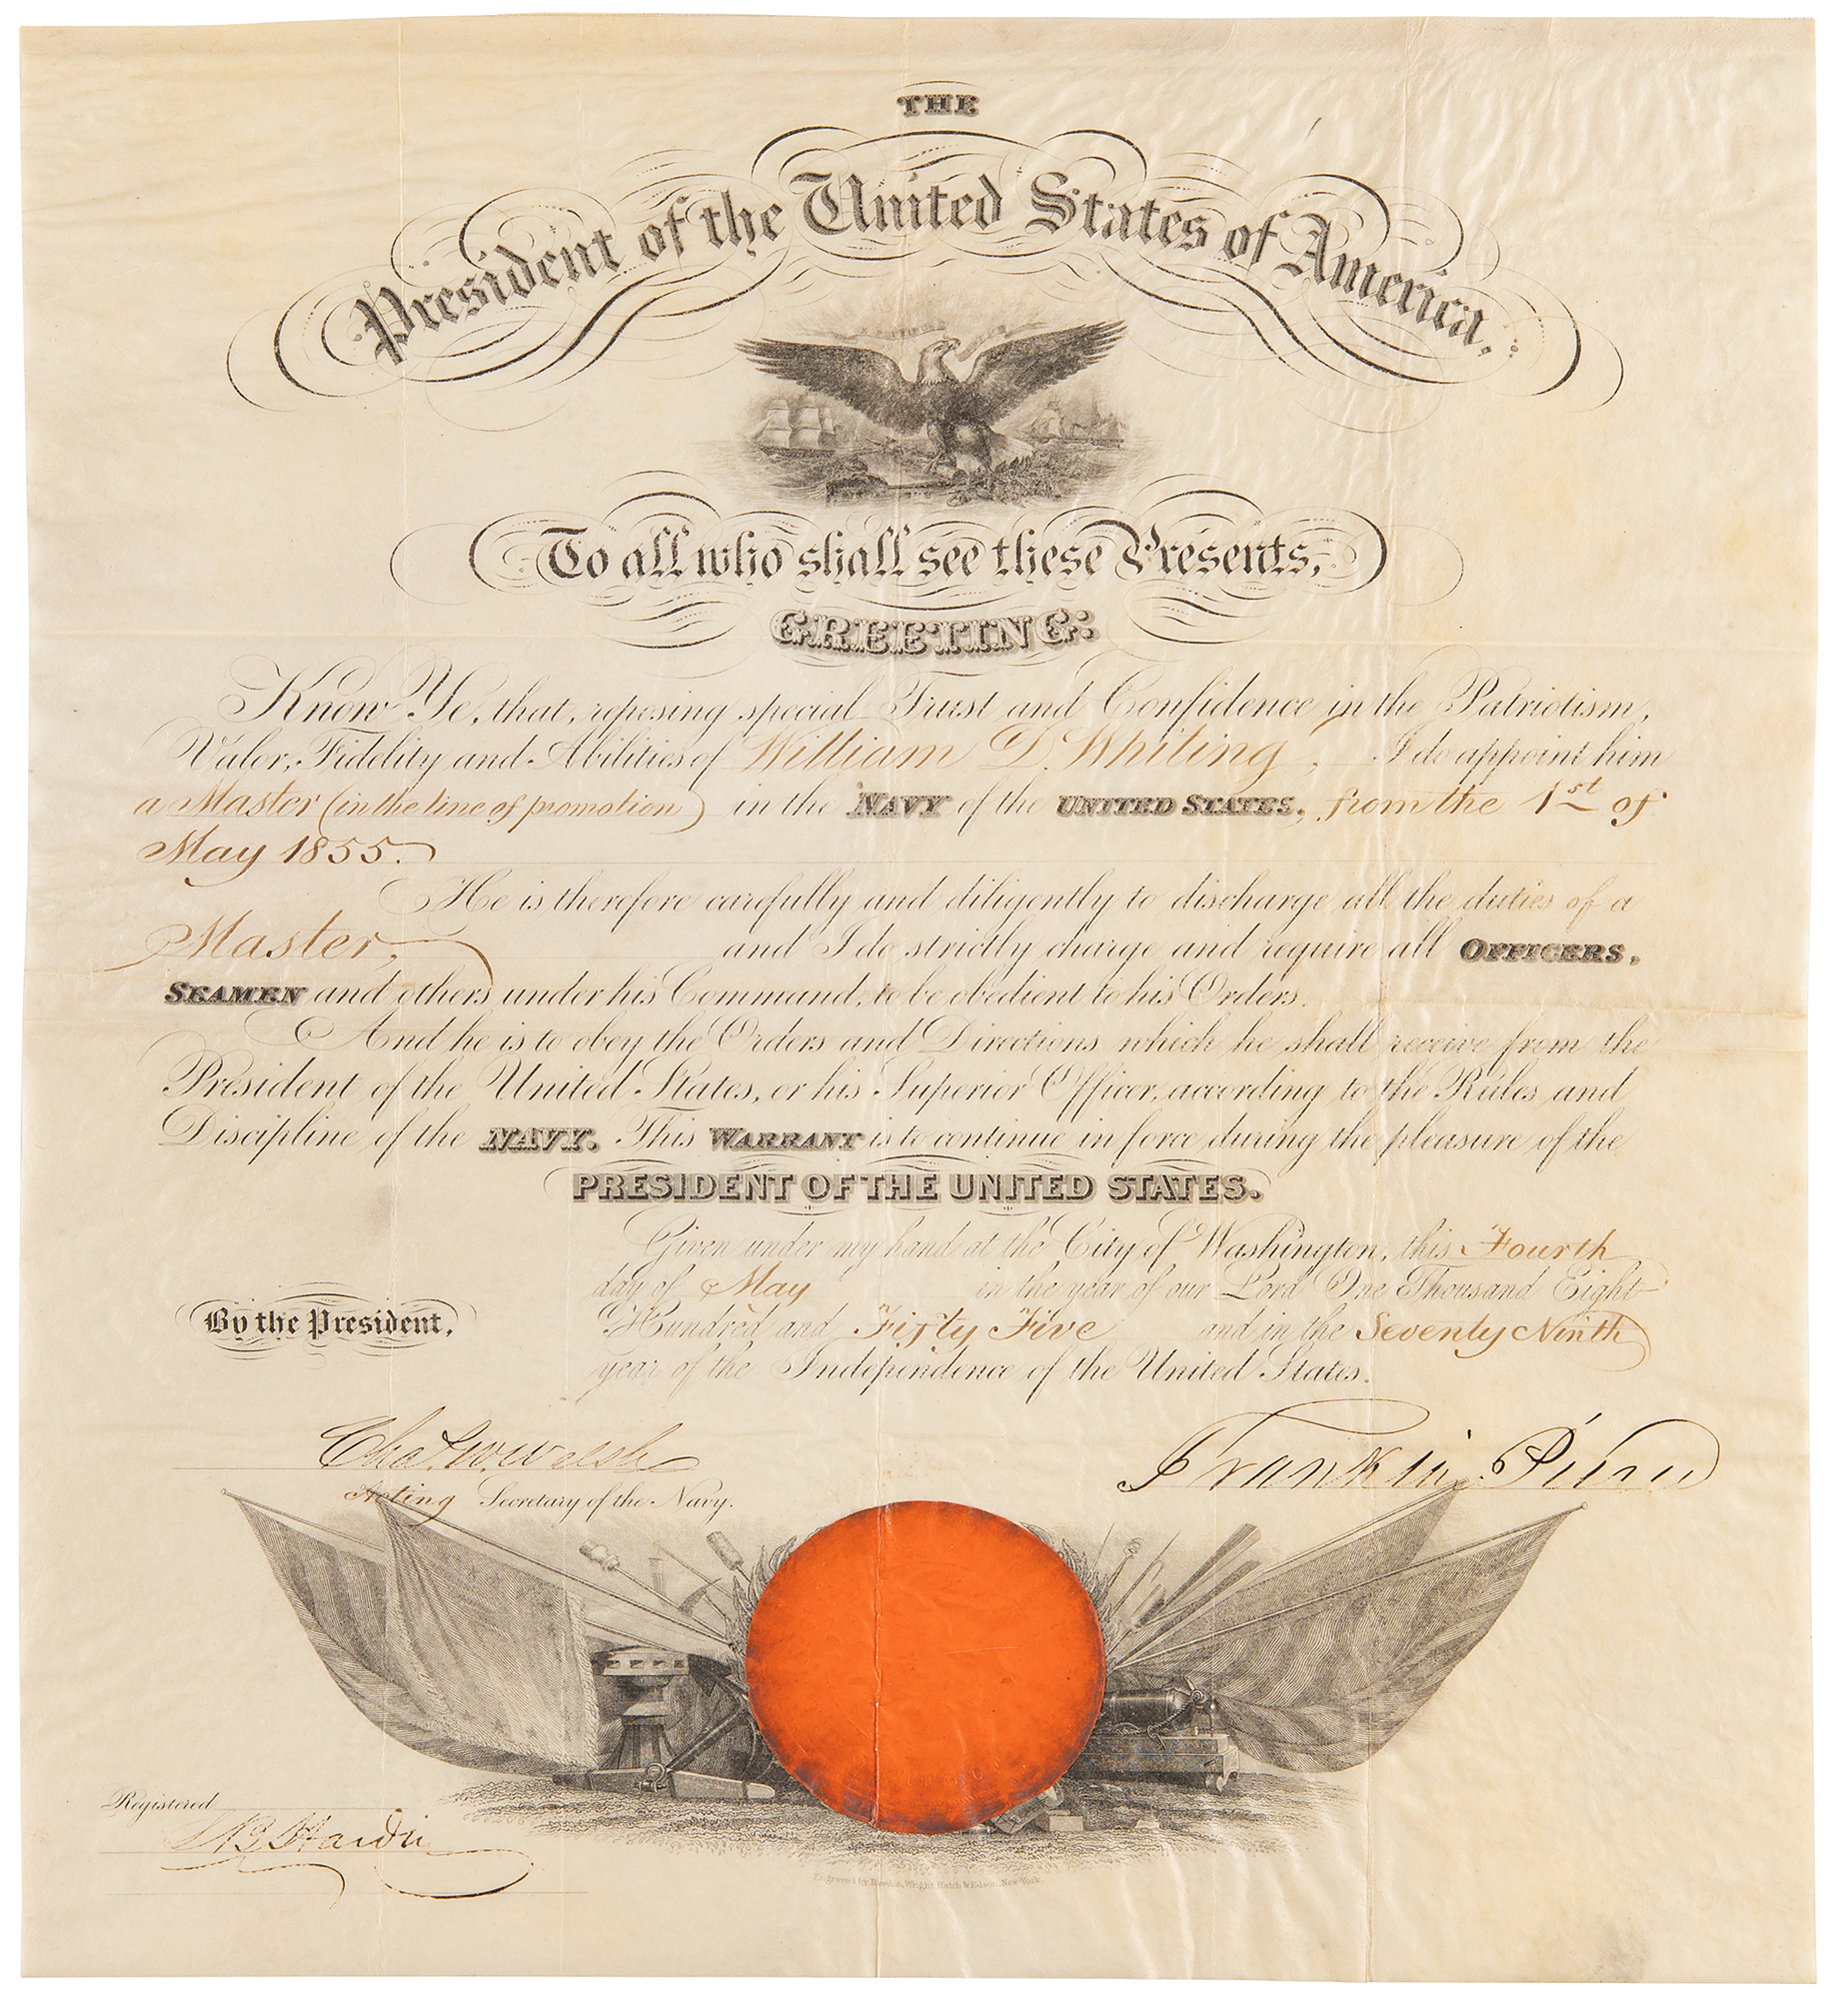 THE
President of the United States of America,
To all who shall see these Presents,
GREETING:
Know Ye, that, reposing special Trust and Confidence in the Patriotism,
Valor, Fidelity and Abilities of William D. Whiting, I do appoint him
a Master (in the line of promotion) in the NAVY of the UNITED STATES, from the 1st of
May 1855.
He is therefore carefully and diligently to discharge all the duties of a
Master, and I do strictly charge and require all OFFICERS,
SEAMEN and others under his Command, to be obedient to his Orders.
And he is to obey the Orders and Directions which he shall receive from the
President of the United States, or his Superior Officer, according to the Rules and
Discipline of the NAVY. This WARRANT is to continue in force during the pleasure of the
PRESIDENT OF THE UNITED STATES.
Given under my hand at the City of Washington, this Fourth
day of May in the year of our Lord One Thousand Eight
Hundred and Fifty Five and in the Seventy Ninth
year of the Independence of the United States.
By the President,
Franklin Pierce
Chas. W. Welsh
Acting Secretary of the Navy.
Registered
Hardin
Engraved by Rawdon, Wright, Hatch & Edson, New-York.